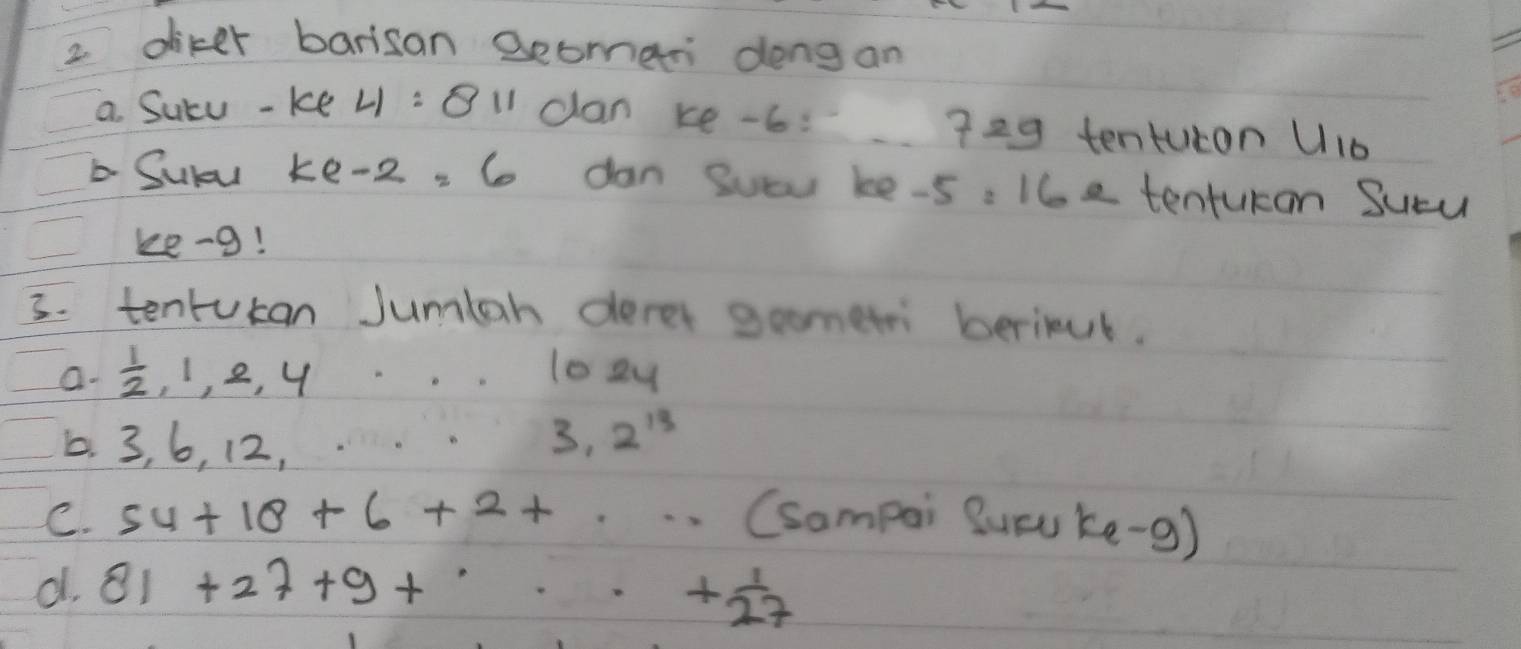 2 diket barisan geometri dengan
a. Suku - ke 4 : 811 dan ke -6: .. 729 tentukan U10
b Suku ke-2 = 6 dan Suku ke -5 : 162 tentukan Suku
ke -9!
3. tentukan Jumlah deret geometri berikut.
a. 1/2, 1, 2, 4 . . . 1024
b. 3, 6, 12, . . . . 3, 2¹³
c. 54 + 18 + 6 + 2 + . .. (Sampai Suku ke-9)
d. 81 + 27 + 9 + . . . + 1/27